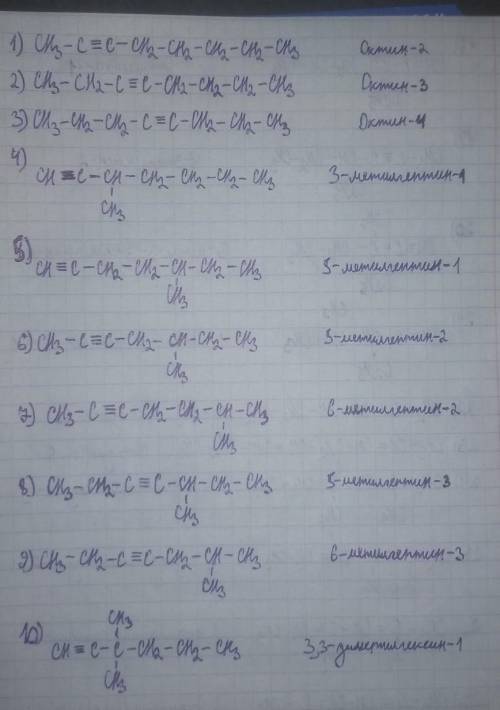 1) CH₃-C≡C-CH₂-CH₂-CH₂-CH₂-CH₃ Октин-2
2) CH₃-CH₂-C≡C-CH₂-CH₂-CH₂-CH₃ Октин-3
3) CH₃-CH₂-CH₂-C≡C-CH₂-CH₂-CH₃ Октин-4
4)
CH≡C-CH-CH₂-CH₂-CH₂-CH₃ 3-метилгептин-1
CH₃
5)
CH≡C-CH₂-CH₂-CH-CH₂-CH₃ 5-метилгептин-1
CH₃
6) CH₃-C≡C-CH₂-CH-CH₂-CH₃ 5-метилгептин-2
CH₃
7) CH₃-C≡C-CH₂-CH₂-CH-CH₃ 6-метилгептин-2
CH₃
8) CH₃-CH₂-C≡C-CH-CH₂-CH₃ 5-метилгептин-3
CH₃
9) CH₃-CH₂-C≡C-CH₂-CH-CH₃ 6-метилгептин-3
CH₃
CH₃
10) CH≡C-C-CH₂-CH₂-CH₃ 3,3-димертилгексин-1
CH₃